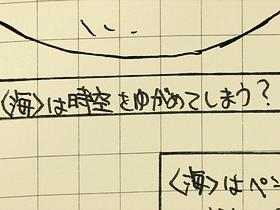 〈海〉は時空をゆがめてしまう？
〈海〉はペン